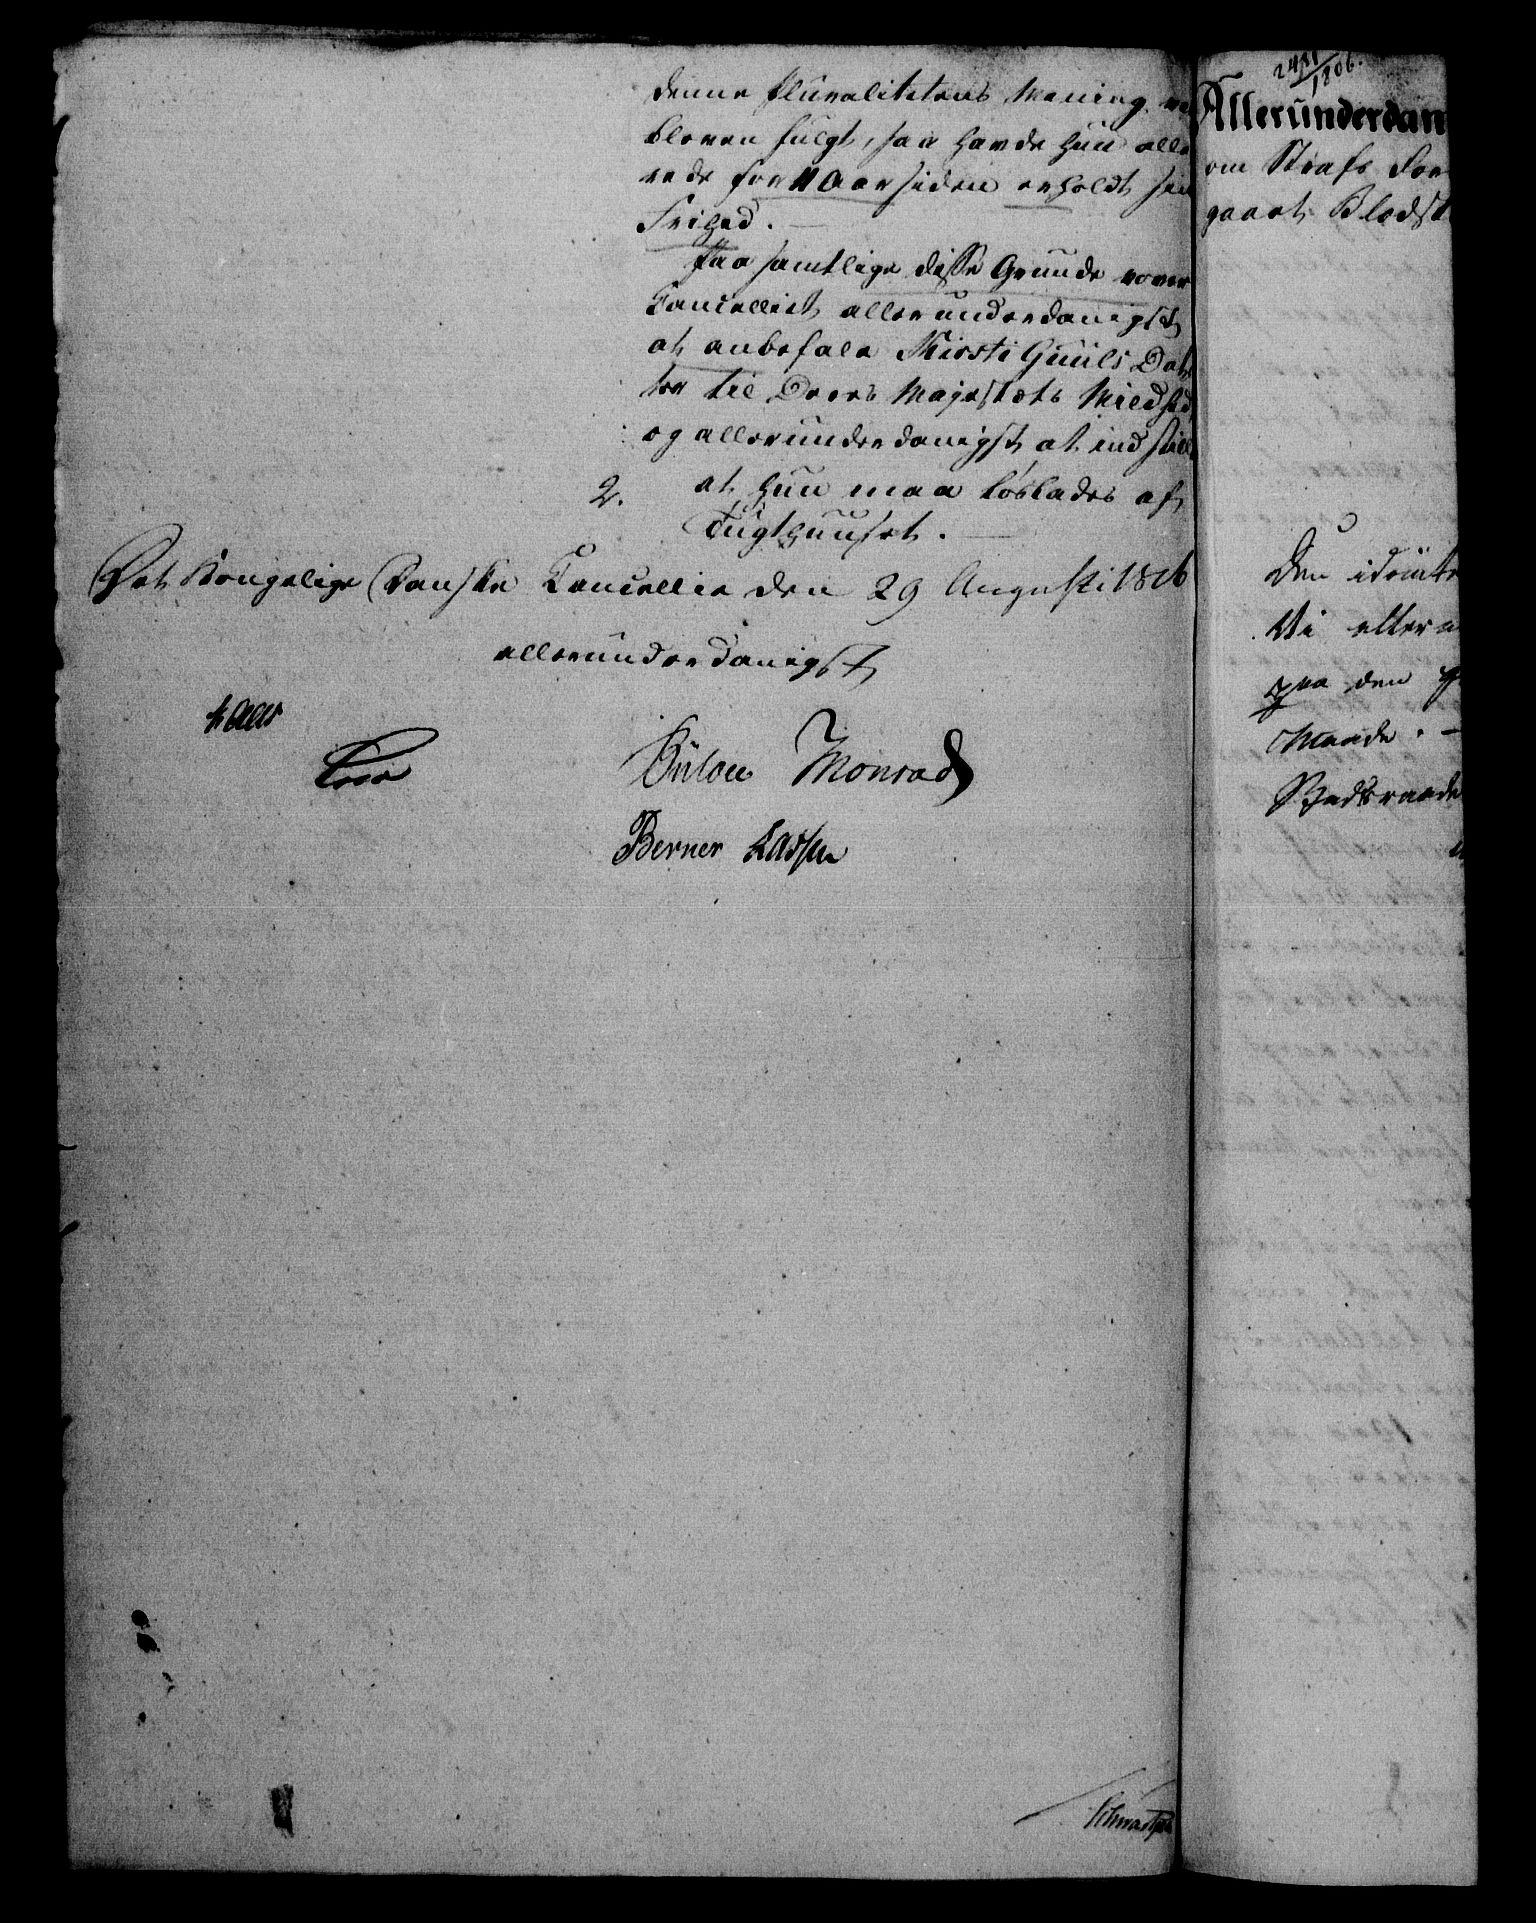 denne Pluralitetens Mening
bleven fulgt, saa havde hun alle
rede for 11 Aar siden erholdt sin
Frihed.
Paa samtlige disse Grunde vover
Cancelliet allerunderdanigst
at anbefale Kirsti Guuls Dat
ter til Deres Majestæts Mildhed
og allerunderdanigst at indstille
2. at hun maa løslades af
Tugthuuset.
Det Kongelige Danske Cancellie den 29 Augusti 1806
allerunderdanigst
Kaas
Bülow Monrad
Berner Lassen
2481/1806.
Allerunderdan
om Straf for
gaaet Blodsk
Den
Vi
paa den
Maade.